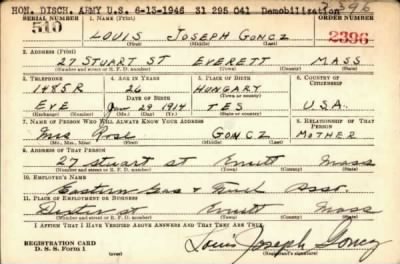 HON. DISCH. ARMY U.S. 6-13-1946 31 295 041 Demobilization 396
SERIAL NUMBER 1. NAME (Print) ORDER NUMBER
510 LOUIS JOSEPH GONCZ 2396
(First) (Middle) (Last)
2. ADDRESS (Print)
27 STUART ST EVERETT MASS
(Number and street or R. F. D. number) (Town) (County) (State)
3. TELEPHONE 4. AGE IN YEARS 5. PLACE OF BIRTH 6. COUNTRY OF CITIZENSHIP
1485R 26 HUNGARY
DATE OF BIRTH (Town or county)
EVE Jan 29 1914 U.S.A.
(Exchange) (Number) (Mo.) (Day) (Yr.) (State or country)
7. NAME OF PERSON WHO WILL ALWAYS KNOW YOUR ADDRESS 8. RELATIONSHIP OF THAT PERSON
Mrs Rose GONCZ MOTHER
(Mr., Mrs., Miss) (First) (Middle) (Last)
9. ADDRESS OF THAT PERSON
27 Stuart St Everett Mass
(Number and street or R. F. D. number) (Town) (County) (State)
10. EMPLOYER'S NAME
Eastern Gas & Fuel Asst.
11. PLACE OF EMPLOYMENT OR BUSINESS
st Everett Mass
(Number and street or R. F. D. number) (Town) (County) (State)
I AFFIRM THAT I HAVE VERIFIED ABOVE ANSWERS AND THAT THEY ARE TRUE.
REGISTRATION CARD
D. S. S. Form 1 (over) Louis Joseph Goncz
(Registrant's signature)